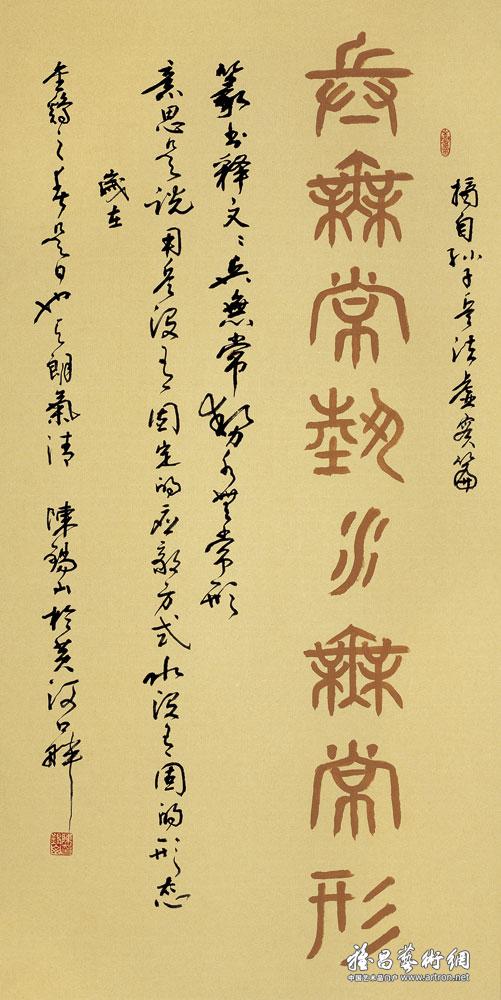 摘自孙子兵法虚实篇
兵無常勢水無常形
篆书释文：兵無常勢水無常形
意思是说用兵没有固定的应敵方式水没有固的形态
歲在
金鷄之春是日也天朗氣清 陳錫山於黄河口畔
雅昌藝術網
中国艺术品门户 www.artron.net